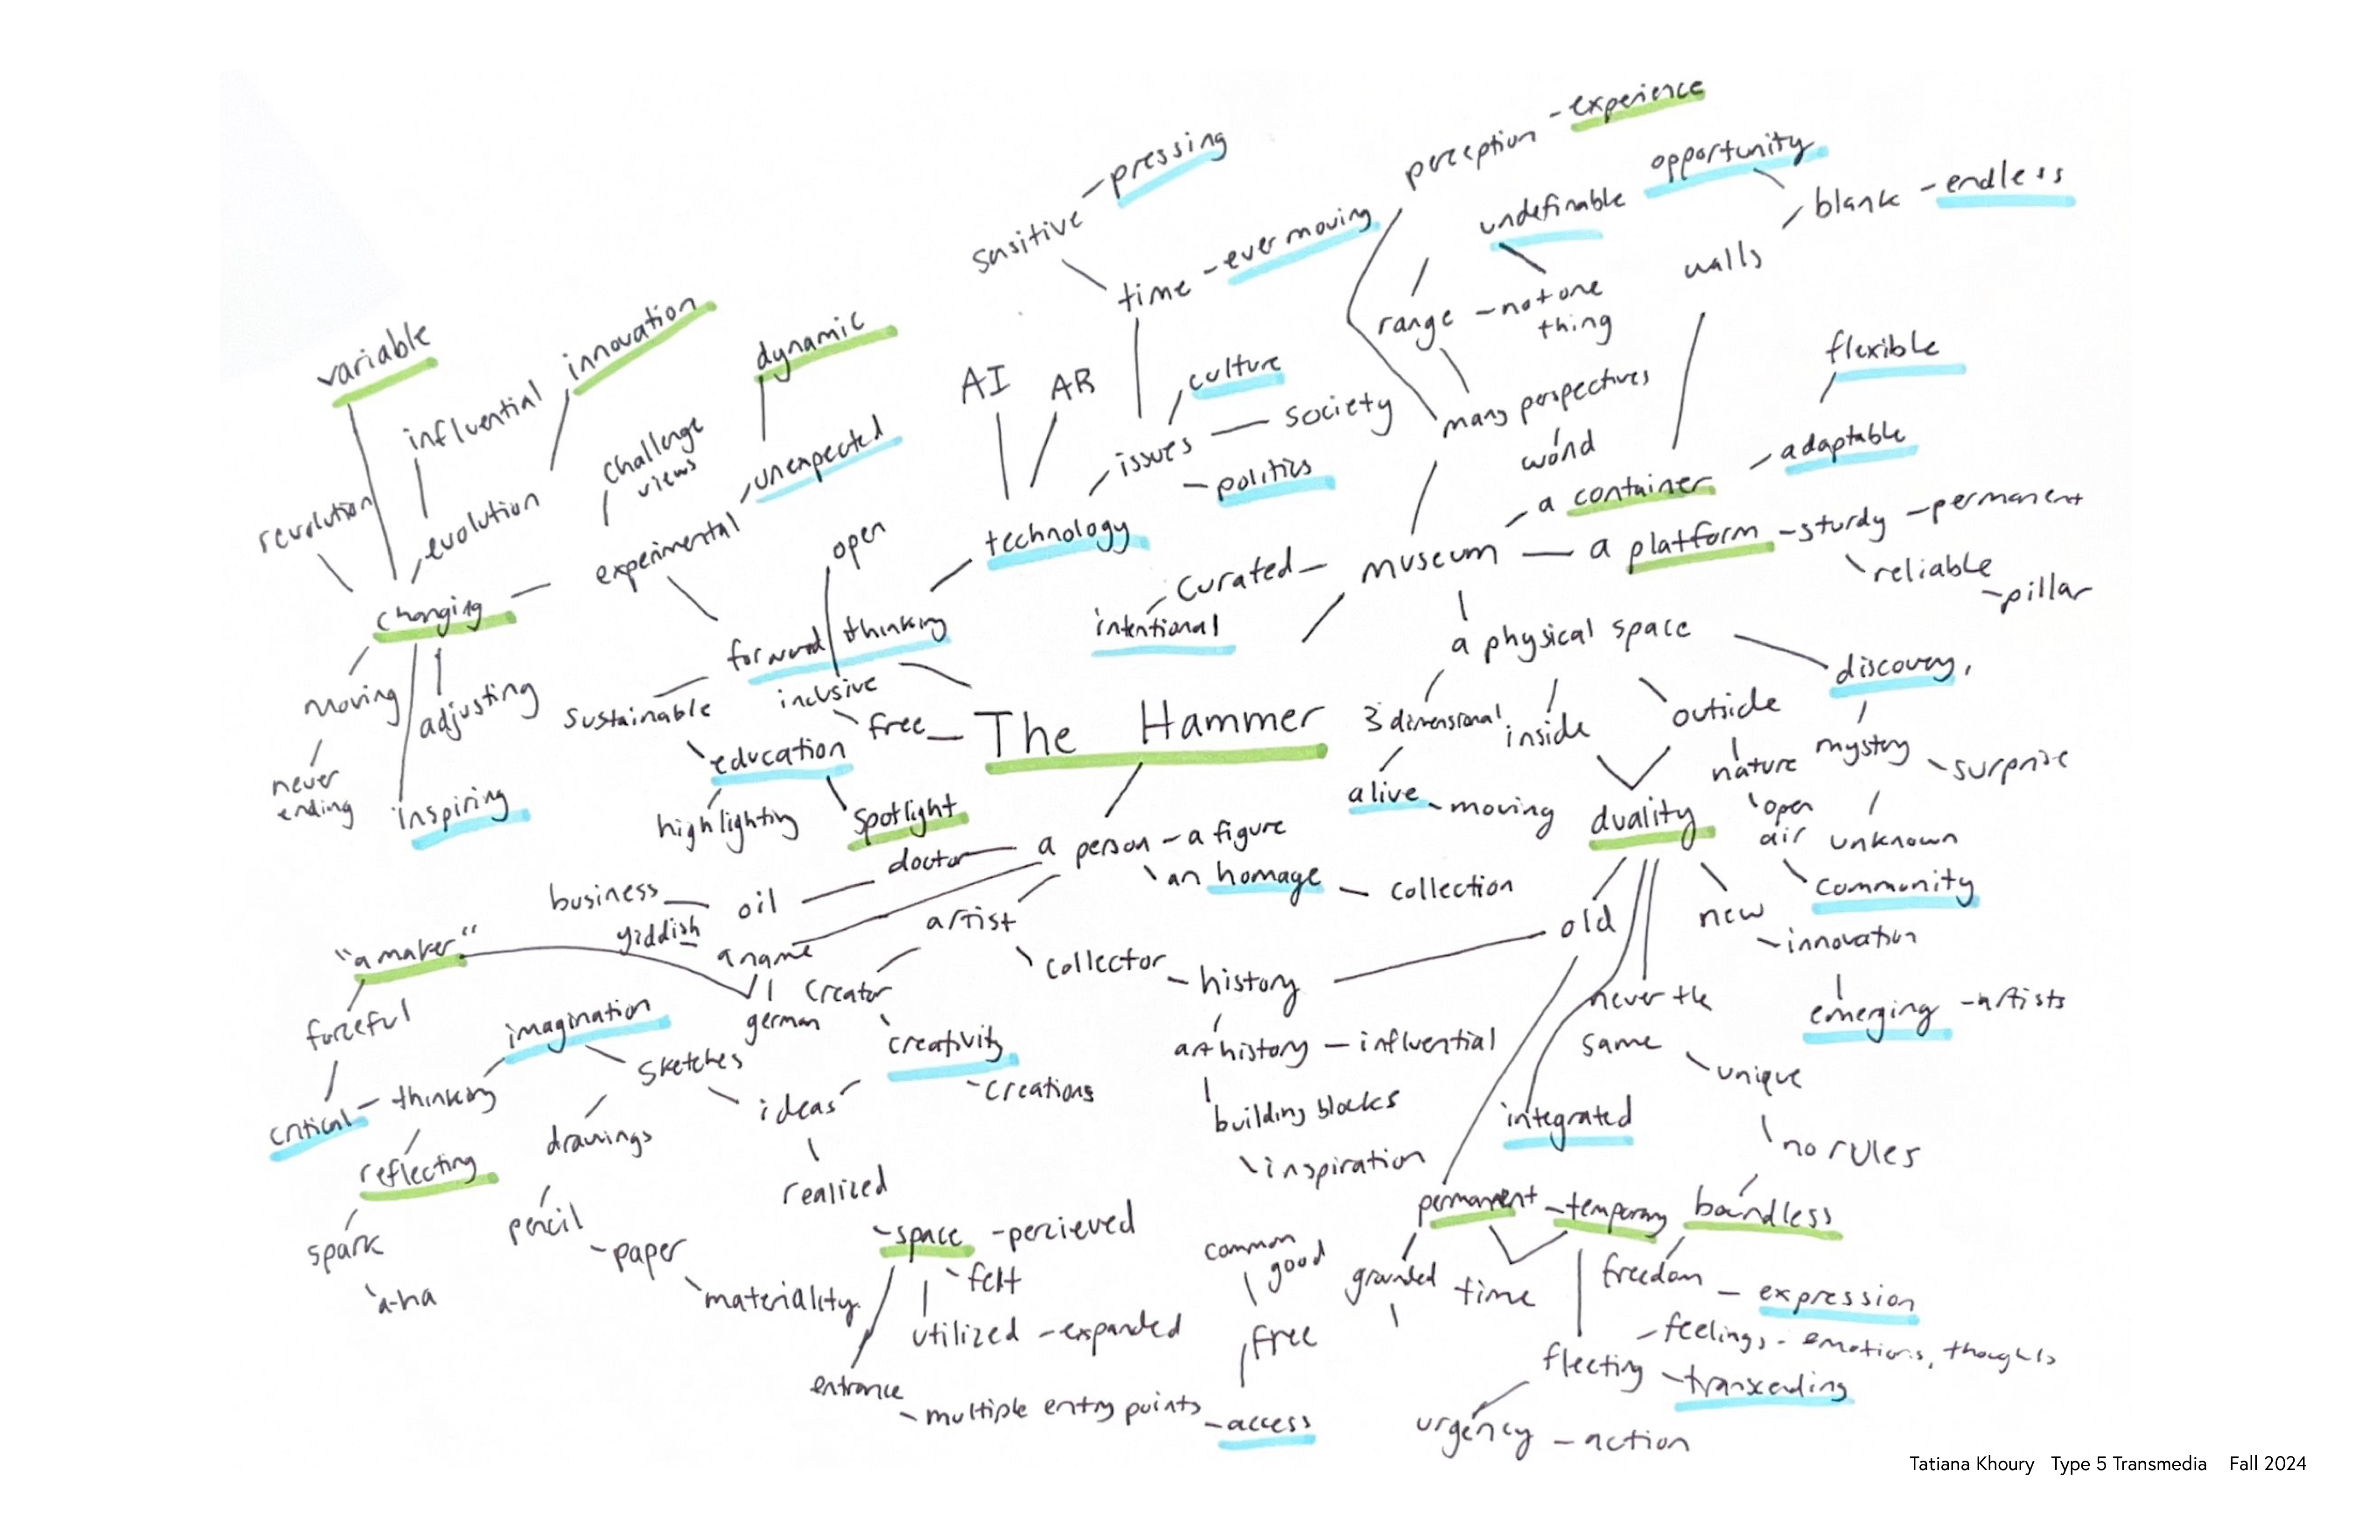 perception - experience
opportunity
- pressing
blank - endless
undefinable
sensitive
time - ever moving
walls
range - not one
thing
variable
innovation
dynamic
flexible
AI
AR
culture
influential
society
many perspectives
challenge
views
issues
unexpected
adaptable
politics
a container
revolution
evolution
experimental
open
technology
museum
a platform - sturdy - permanent
curated
reliable
- pillar
changing
forward thinking
intentional
a physical space
discovery,
moving
adjusting
sustainable
inclusive
free
The Hammer
3 dimensional
inside
outside
education
nature
mystery
surprise
never
ending
inspiring
highlighting
spotlight
alive - moving
duality
open
air
unknown
doctor
a person - a figure
an homage - collection
community
business
oil
artist
old
new
- innovation
yiddish
"a maker"
a name
collector - history
forceful
imagination
creator
german
never the
same
emerging - artists
sketches
creativity
- creations
art history - influential
unique
critical - thinking
ideas
building blocks
integrated
drawings
reflecting
inspiration
no rules
realized
spark
pencil
- paper
- space - percieved
permanent - temporary
boundless
common
good
a-ha
materiality
felt
grounded
time
freedom
- expression
utilized - expanded
free
- feelings - emotions, thoughts
fleeting - transcending
entrance
- multiple entry points - access
urgency - action
Tatiana Khoury Type 5 Transmedia Fall 2024